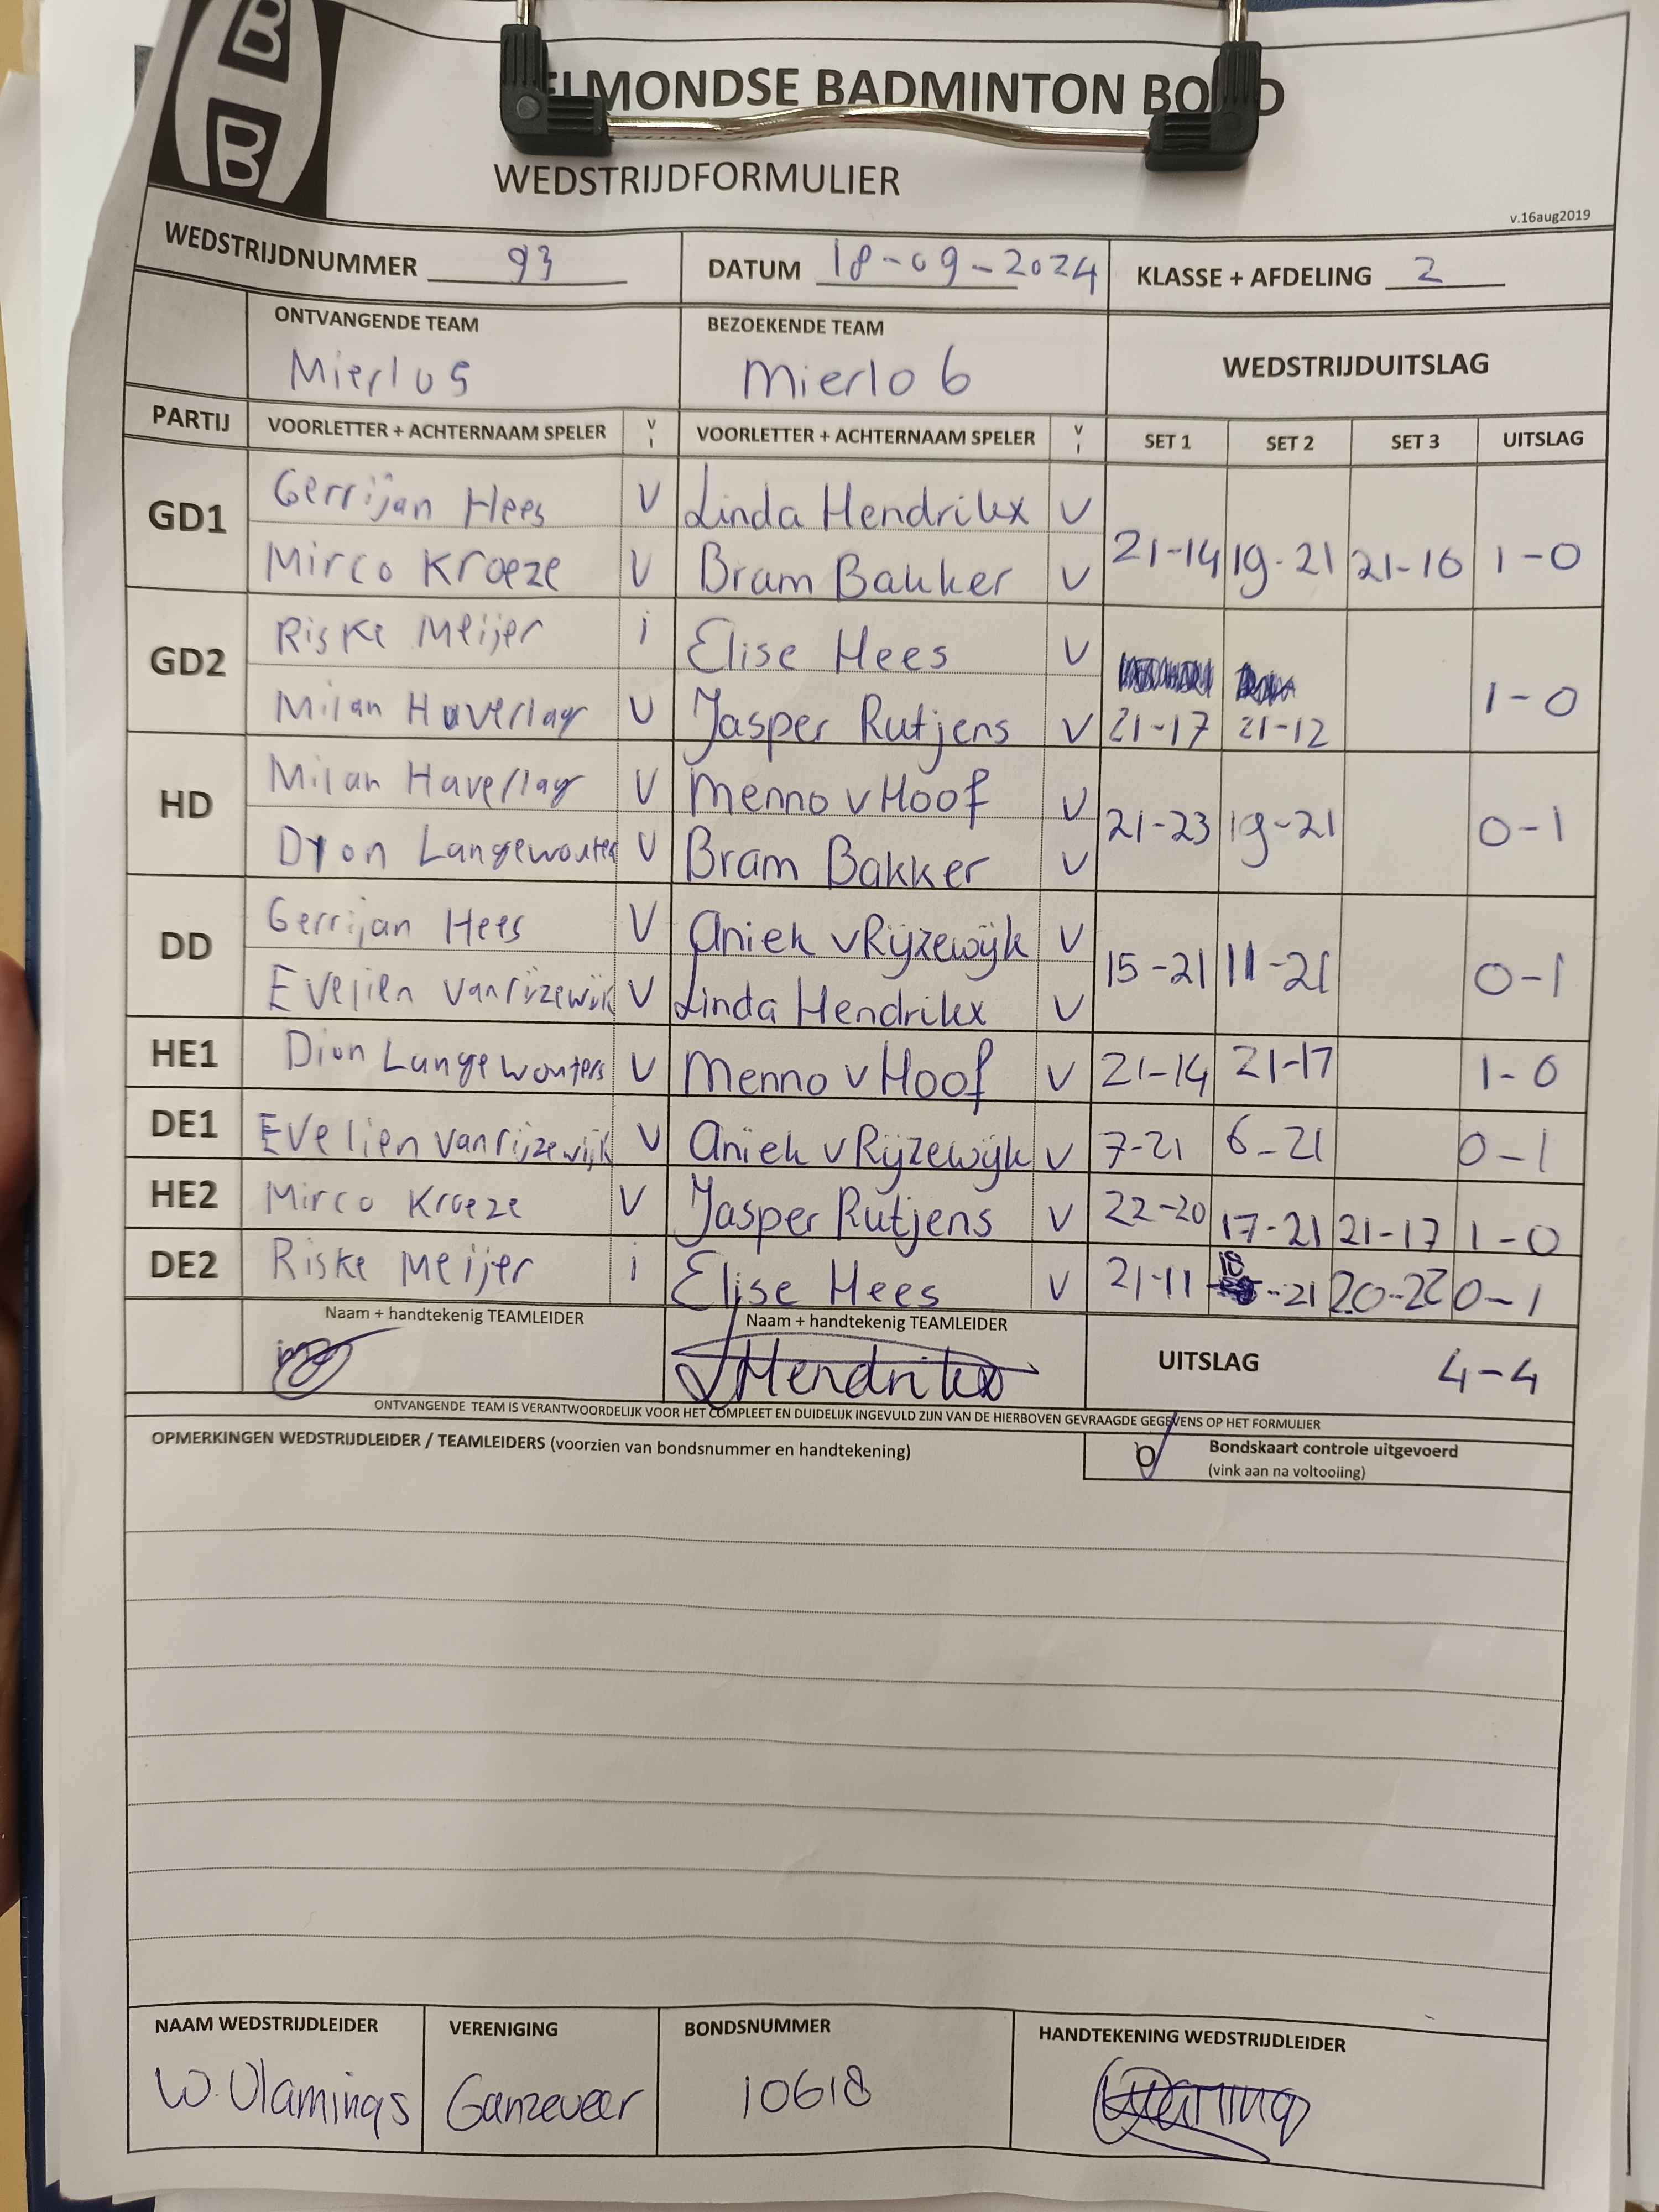 B
B
ELMONDSE BADMINTON BOND
WEDSTRIJDFORMULIER
v.16aug2019
WEDSTRIJDNUMMER 93 DATUM 18-09-2024 KLASSE + AFDELING 2
ONTVANGENDE TEAM BEZOEKENDE TEAM
Mierlo 5 Mierlo 6 WEDSTRIJDUITSLAG
PARTIJ VOORLETTER + ACHTERNAAM SPELER V I VOORLETTER + ACHTERNAAM SPELER V I SET 1 SET 2 SET 3 UITSLAG
Gerrijan Hees V Linda Hendrikx V
GD1 21-14 19-21 21-16 1-0
Mirco Kroeze V Bram Bakker V
Riske Meijer i Elise Hees V
GD2 1-0
Milan Haverlag V Jasper Rutjens V 21-17 21-12
Milan Haverlag V Menno v Hoof V
HD 21-23 19-21 0-1
Dyon Langewouters V Bram Bakker V
Gerrijan Hees V Aniek v Rijzewijk V
DD 15-21 11-21 0-1
Evelien van rijzewijk V Linda Hendrikx V
HE1 Dion Langewouters V Menno v Hoof V 21-14 21-17 1-0
DE1 Evelien van rijzewijk V Aniek v Rijzewijk V 7-21 6-21 0-1
HE2 Mirco Kroeze V Jasper Rutjens V 22-20 17-21 21-17 1-0
DE2 Riske Meijer i Elise Hees V 21-11 18-21 20-22 0-1
Naam + handtekenig TEAMLEIDER Naam + handtekenig TEAMLEIDER
Hendrikx UITSLAG 4-4
ONTVANGENDE TEAM IS VERANTWOORDELIJK VOOR HET COMPLEET EN DUIDELIJK INGEVULD ZIJN VAN DE HIERBOVEN GEVRAAGDE GEGEVENS OP HET FORMULIER
OPMERKINGEN WEDSTRIJDLEIDER / TEAMLEIDERS (voorzien van bondsnummer en handtekening) Bondskaart controle uitgevoerd
(vink aan na voltooiing)
NAAM WEDSTRIJDLEIDER VERENIGING BONDSNUMMER HANDTEKENING WEDSTRIJDLEIDER
W. Vlamings Ganzeveer 10618